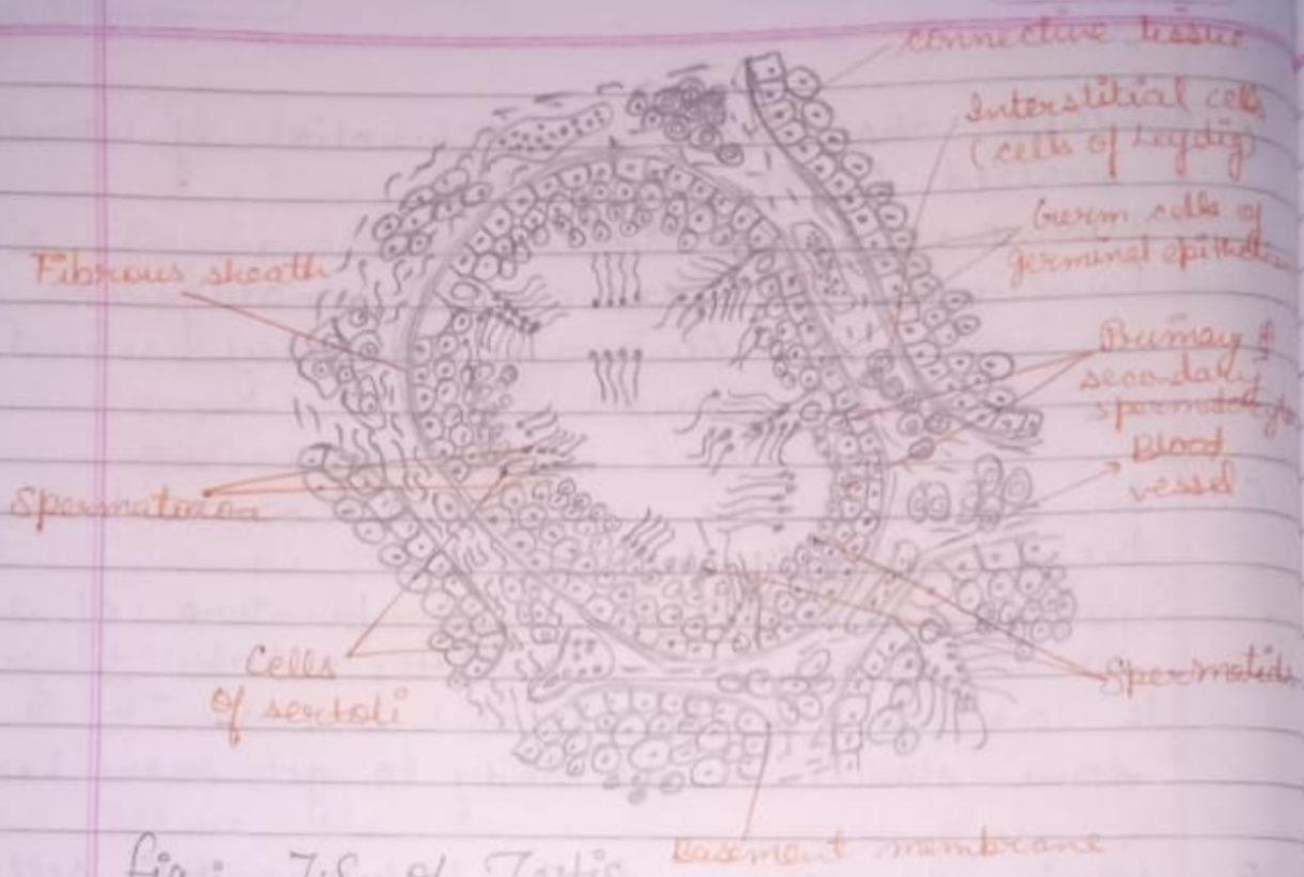 connective tissue
Interstitial cells
(cells of Leydig)
Germ cells of
germinal epithelium
Fibrous sheath
Primary &
secondary
spermatocytes
Blood
vessel
Spermatozoa
Cells
of sertoli
Spermatids
Basement membrane
fig: T.S. of Testis